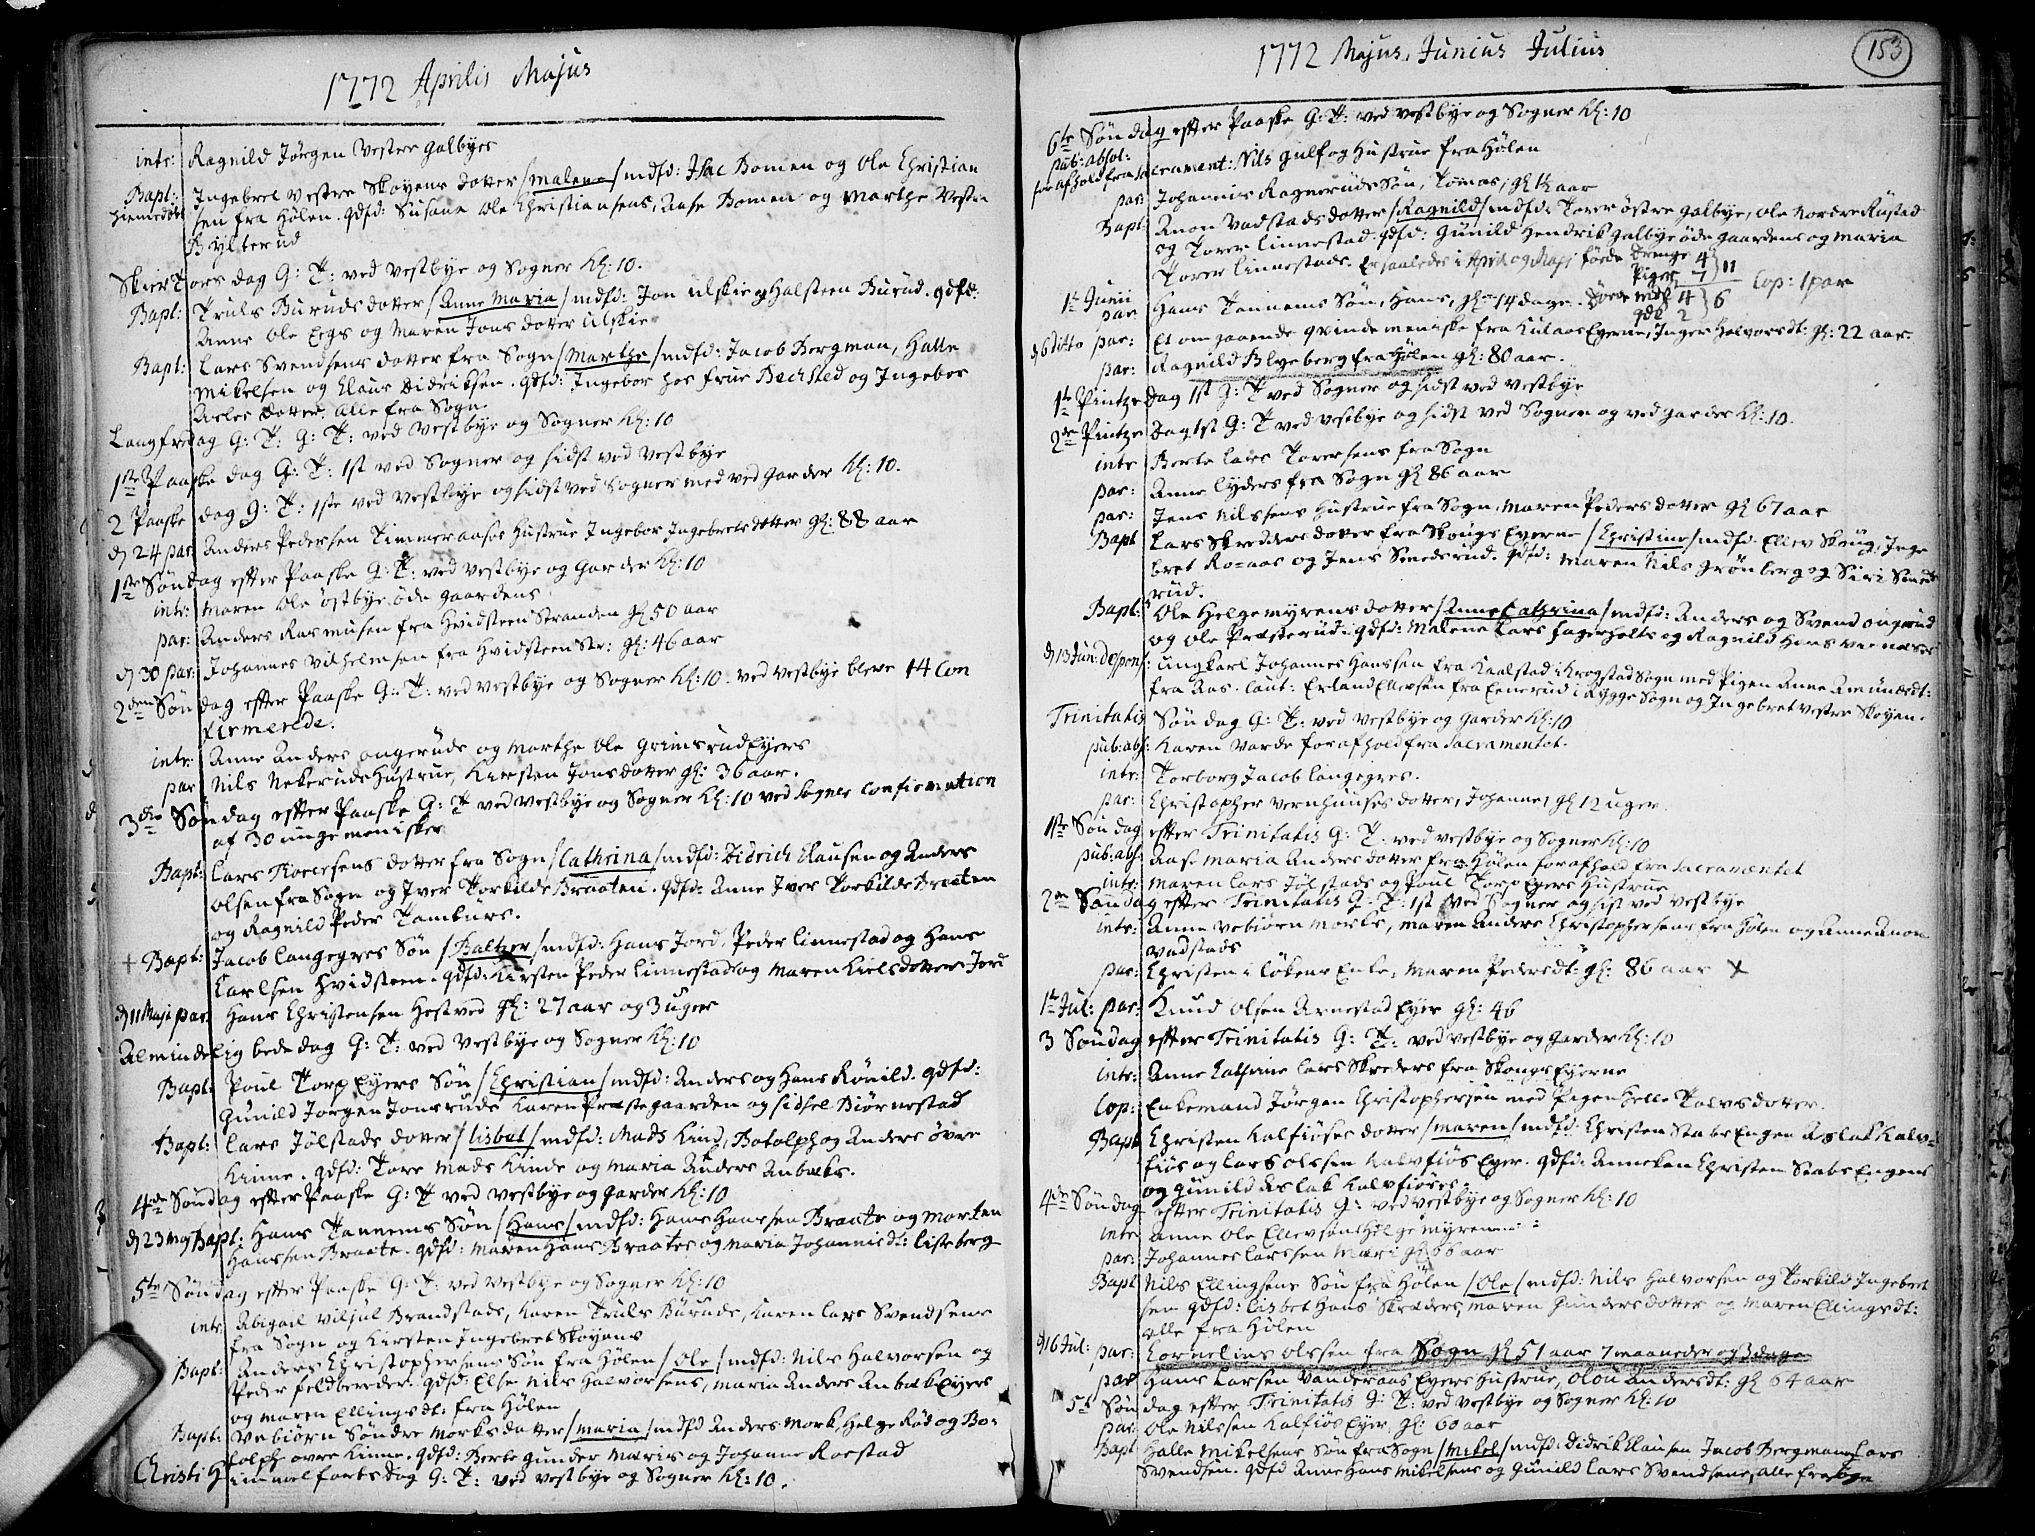 1772 Aprilis Majus
intr: Ragnild Jørgen Vestre galbyes
Bapt: Ingebret Vestre Skøyens dotter /Malene/ mdfd: Isac Bomen og Ole Christian
hiemedøbt sen fra Hølen. qdfd: Susana Ole Christiansens, Aase Bomen og Marthe Vestre
Bylterud
Skiertorsdag G: T: ved Vestbye og Sogner Kl: 10.
Bapt: Truls Buruds dotter /Anne Maria/ mdfd: Jon Ulskie og Halsteen Burud. qdfd:
Anne Ole Eegs og Maren Jons dotter Ulskie
Bapt: Lars Svendsens dotter fra Sogn /Marthe/ mdfd: Jacob Bergman, Halle
Mikelsen og Claus Didriksen. qdfd: Ingebor hos frue Bechsted og Ingebor
Axels dotter, alle fra Sogn.
Langfredag G: T: G: T: ved Vestbye og Sogner Kl: 10
1ste Paaske dag G: T: 1st ved Sogner og sidst ved Vestbye
2 Paaske dag G: T: 1ste ved Vestbye og sidst ved Sogner med ved Garder Kl: 10.
d 24 par: Anders Pedersen Timmeraases Hustrue Ingebor Ingebrets dotter gl: 88 aar
1ste Søndag efter Paaske G: T: ved Vestbye og Garder Kl: 10
intr: Maren Ole østbye øde gaardens
par: Anders Rasmusen fra Hvidsteen Stranden gl 50 aar
d 30 par: Johannes Vilhelmsen fra Hvidsteen Str: gl: 46 aar
2den Søndag efter Paaske G: T: ved Vestbye og Sogner Kl: 10. ved Vestbye bleve 14 Con
firmerede.
intr: Anne Anders ongeruds og Marthe Ole Grimsrud Eyers
par Nils Nekeruds Hustrue, Kirsten Jons dotter gl: 36 aar.
3die Søndag efter Paaske G: T ved Vestbye og Sogner Kl: 10 ved Sogner Confirmation
af 30 unge menisker
Bapt: Lars Thorersens dotter fra Sogn /Cathrina/ mdfd: Didrich Clausen og Anders
Olsen fra Sogn og Iver Torkilds Braaten. qdfd: Anne Iver Torkilds Braaten
og Ragnild Peder Tamburs.
+ Bapt: Jacob Langegres Søn /Baltzer/ mdfd: Hans Jord, Peder Linnestad og Hans
Carlsen Hvidsteen. qdfd: Kirsten Peder Linnestads og Maren Nielsdotter Jord
d 11 Maji par: Hans Christensen Hestved gl: 27 aar og 3 uger
Almindelig bede dag G: T: ved Vestbye og Sogner Kl: 10
Bapt: Poul Torp Eyers Søn /Christian/ mdfd: Anders og Hans Rønild. qdfd:
Gunild Jørgen Jonsruds Karen Præstegaarden og Sidsel Biørnestad
Bapt: Lars Jølstads dotter /Lisbet/ mdfd: Mads Kind, Botolph og Anders øvre
Kinne. qdfd: Tore Mads Kinds og Maria Anders Anbæks.
4de Søndag efter Paaske G: T ved Vestbye og Garder Kl: 10
d 23 Maj Bapt: Hans Tannems Søn /Hans/ mdfd: Hans Hanssen Braate og Morten
Hanssen Braate. qdfd: Maren Hans Braates og Maria Johannisdt: Listeberg
5te Søndag efter Paaske G: T: ved Vestbye og Sogner Kl: 10
intr Abigael Viljul Brandstads, Karen Truls Buruds, Karen Lars Svendsens
fra Sogn og Kirsten Ingebret Skøyens
Bapt: Anders Christophersens Søn fra Hølen /Ole/ mdfd: Nils Halvorsen og
Peder feldbereder. qdfd: Else Nils Halvorsens, Maria Anders Anbæk Eyers
og Maren Ellingsdt: fra Hølen
Bapt: Vebiørn Søndre Morks dotter /Maria/ mdfd Anders Mork, Helge Rød og Bo-
tolph øvre Kinne. qdfd: Berte Gunder Maris og Johanne Roestad
Christi Himmelfarts dag G: T: ved Vestbye og Sogner Kl: 10.
1772 Majus, Junius Julius
153
6te Søndag efter Paaske G: T: ved Vestbye og Sogner Kl: 10
pub: absol:
for afhold fra Sacrament: Nils Gulf og Hustrue fra Hølen
par: Johannis Ragneruds Søn, Tomas, gl 1½ aar
Bapt: Anon Vadstads dotter /Ragnild/ mdfd: Torer østre galbye, Ole Nordre Rustad
og Torer Linnestad. qdfd: Gunild Hendrik galbye øde gaardens og Maria
Torer Linnestads. Er saaledes i April og Maji fødte Drenge 4
Piger 7 } 11 Cop: 1 par
1te Junii
par Hans Tannems Søn, Hans, gl 14 dage. Døde mdk 4 } 6
qdk 2
d 6 ditto par: Et omgaaende qvinde meniske fra Kulaas Eyerne, Inger Halvorsdt: gl: 22 aar.
par: Ragnild Blyeberg fra Hølen gl: 80 aar.
1te Pintze dag 1st G: T ved Sogner og sidst ved Vestbye
2den Pintze Dag 1st G: T ved Vestbye og sidst ved Sogner og ved Garder Kl: 10.
intr Berte Lars Torersens fra Sogn
par: Anne Lyders fra Sogn gl 86 aar
par: Jens Nilssens Hustrue fra Sogn, Maren Peders dotter gl 67 aar
Bapt Lars Skredders dotter fra Skougs Eyerne /Christine/ mdfd: Ellev Skoug, Inge
bret Ro=aas og Jens Smederud. qdfd: Maren Nils Grønberg og Siri Smede
rud.
Bapt: Ole Helgemyrens dotter /Anne Cathrina/ mdfd: Anders og Svend ongerud
og Ole Præsterud. qdfd: Malene Lars Fagerholts og Ragnild Hans
d 13 Jun: despens: Ungkarl Johannes Hanssen fra Kaalstad i Krogstad Sogn med Pigen Anne Amundsdt:
fra Aas. Caut: Erland Ellevsen fra Enerud i Rygge Sogn og Ingebret Vestre Skøyen.
Trinitatis Søndag G: T: ved Vestbye og Garder Kl: 10
pub: abs: Karen Varde for afhold fra Sacramentet.
intr: Torborg Jacob Langegres.
par: Christopher Vernhuuses dotter, Johanne, gl 12 uger
1ste Søndag efter Trinitatis G: T: ved Vestbye og Sogner Kl: 10
pub: abs: Aase Maria Anders dotter fra Hølen for afhold fra Sacramentet
intr: Maren Lars Jølstads og Poul Torp Eyers Hustrue
2den Søndag efter Trinitatis G: T: 1st ved Sogner og sist ved Vestbye
intr: Anne Vebiørn Morks, Maren Anders Christophersens fra Hølen og Anne Anon
Vadstads
par: Christen i Løkens Enke, Maren Pedersdt: gl: 86 aar X
1te Jul: par: Knud Olsen Arnestad Eyer gl: 46
3 Søndag efter Trinitatis G: T: ved Vestbye og Garder Kl: 10
intr: Anne Cathrine Lars Skreders fra Skougs Eyerne
Cop: Enkemand Jørgen Christophersen med Pigen Helle Talvs dotter
Bapt Christen Kalfiøses dotter /Maren/ mdfd: Christen Stabs Engen Aslak Kalv-
fiøs og Lars Olssen Kalvfiøs Eyer. qdfd: Anneken Christen Stabs Engens
og Gunild Aslak Kalvfiøses.
4de Søndag efter Trinitatis G: ved Vestbye og Sogner Kl: 10
intr Anne Ole Ellevsøn Helgemyrens
par: Johannes Larssen Mari gl 66 aar
Bapt Nils Ellingsens Søn fra Hølen /Ole/ mdfd: Nils Halvorsen og Torkild Ingebret
sen qdfd: Lisbet Hans Skræders, Maren Gunders dotter og Maren Ellingsdt:
alle fra Hølen
d 16 Jul: par: Cornelius Olssen fra Sogn gl 51 aar 7 maaneder og 3 dage
par Hans Larsen Vanderaas Eyers Hustrue, Olou Andersdt: gl 64 aar
5te Søndag efter Trinitatis G: T: ved Vestbye og Sogner Kl: 10
par: Ole Nilssen Kalfiøs Eyer, gl: 60 aar
Bapt Halle Mikelsens Søn fra Sogn /Mikel/ mdfd: Didrik Clausen Jacob Bergman Lars
Svendsen. qdfd Anne Hans Mikelsens og Gunild Lars Svendsens, alle fra Sogn